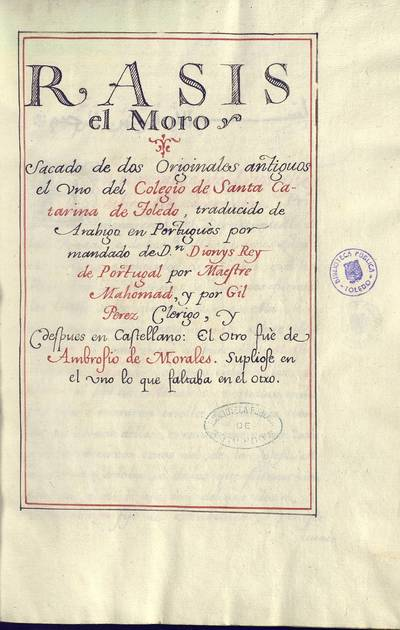 RASIS
el Moro
Sacado de dos Originales antiguos
el vno del Colegio de Santa Ca-
tarina de Toledo, traducido de
Arabigo en Portuguès por
mandado de D.n Dionys Rey
de Portugal por Maestre
Mahomad, y por Gil
Perez Clerigo, y
despues en Castellano: El otro fuè de
Ambrosio de Morales. Supliose en
el vno lo que faltaba en el otro.
BIBLIOTECA PÚBLICA
TOLEDO
BIBLIOTECA PUBLICA
DE